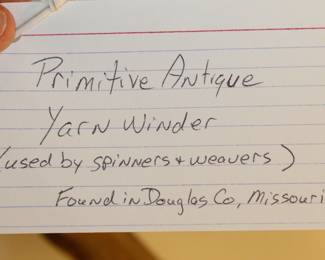 Primitive Antique
Yarn Winder
(used by spinners + weavers)
Found in Douglas Co, Missouri